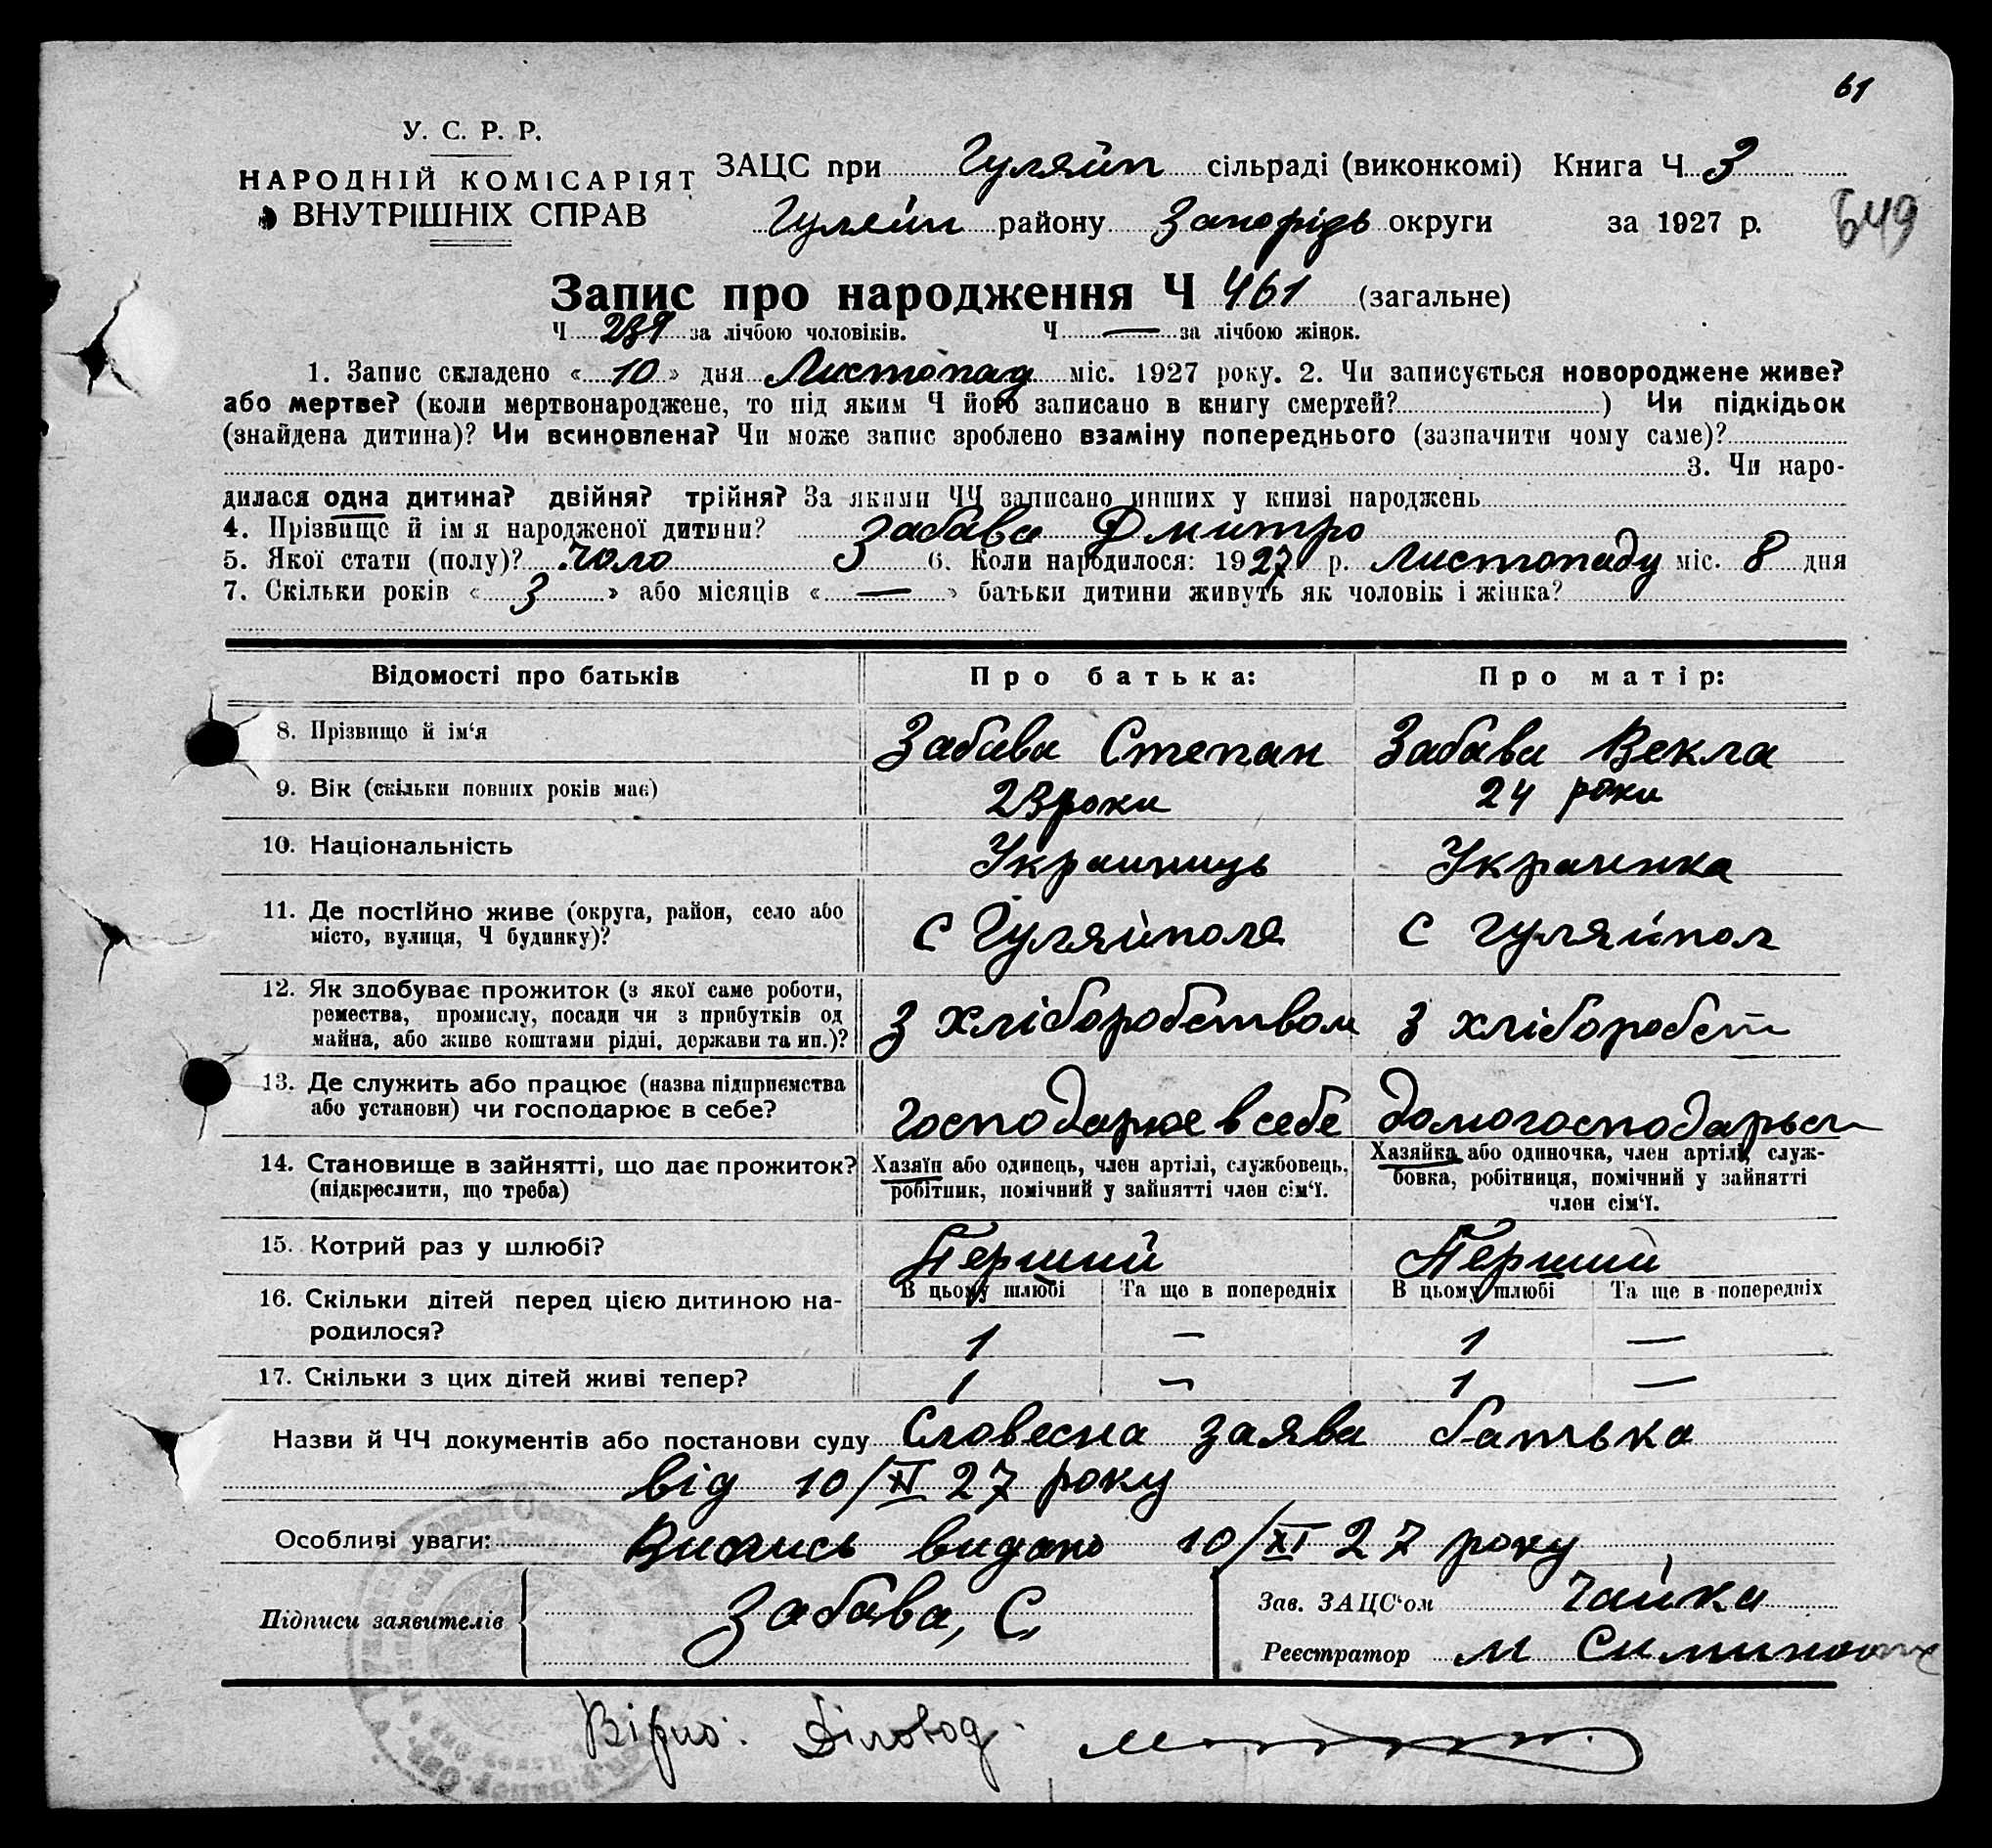 61
У. С. Р. Р.
НАРОДНІЙ КОМІСАРІЯТ
ВНУТРІШНІХ СПРАВ
ЗАЦС при Гуляйп сільраді (виконкомі) Книга Ч 3
Гуляйп району Запорізь округи за 1927 р.
649
Запис про народження Ч 461 (загальне)
Ч 239 за лічбою чоловіків. Ч — за лічбою жінок.
1. Запис складено « 10 » дня Листопад міс. 1927 року. 2. Чи записується новороджене живе?
або мертве? (коли мертвонароджене, то під яким Ч його записано в книгу смертей? ) Чи підкідьок
(знайдена дитина)? Чи всиновлена? Чи може запис зроблено взаміну попереднього (зазначити чому саме)?
3. Чи наро-
дилася одна дитина? двійня? трійня? За якими ЧЧ записано инших у книзі народжень
4. Прізвище й ім я народженої дитини? Забава Дмитро
5. Якої стати (полу)? Чоло 6. Коли народилося: 1927 р. Листопаду міс. 8 дня
7. Скільки років « 3 » або місяців « — » батьки дитини живуть як чоловік і жінка?
Відомості про батьків Про батька: Про матір:
8. Прізвище й ім'я Забава Степан Забава Векла
9. Вік (скільки повних років має) 23 роки 24 роки
10. Національність Украинець Украинка
11. Де постійно живе (округа, район, село або
місто, вулиця, Ч будинку)? С Гуляйполя С Гуляйпол
12. Як здобуває прожиток (з якої саме роботи,
ремества, промислу, посади чи з прибутків од
майна, або живе коштами рідні, держави та ин.)? З хліборобством З хліборобст
13. Де служить або працює (назва підприємства
або установи) чи господарює в себе? господарює в себе домогосподарьст
14. Становище в зайнятті, що дає прожиток?
(підкреслити, що треба)
Хазяїн або одинець, член артілі, службовець,
робітник, помічний у зайнятті член сім'ї.
Хазяйка або одиночка, член артілі, служ-
бовка, робітниця, помічний у зайнятті
член сім'ї.
15. Котрий раз у шлюбі? Перший Перший
16. Скільки дітей перед цією дитиною на-
родилося?
В цьому шлюбі Та ще в попередніх В цьому шлюбі Та ще в попередніх
1 — 1 —
17. Скільки з цих дітей живі тепер? 1 — 1 —
Назви й ЧЧ документів або постанови суду Словесна заява батька
від 10/XI 27 року
Особливі уваги: Випись видано 10/XI 27 року
Підписи заявителів Забава, С.
Зав. ЗАЦС'ом Чайка
Реєстратор М
Вірно: Діловод: